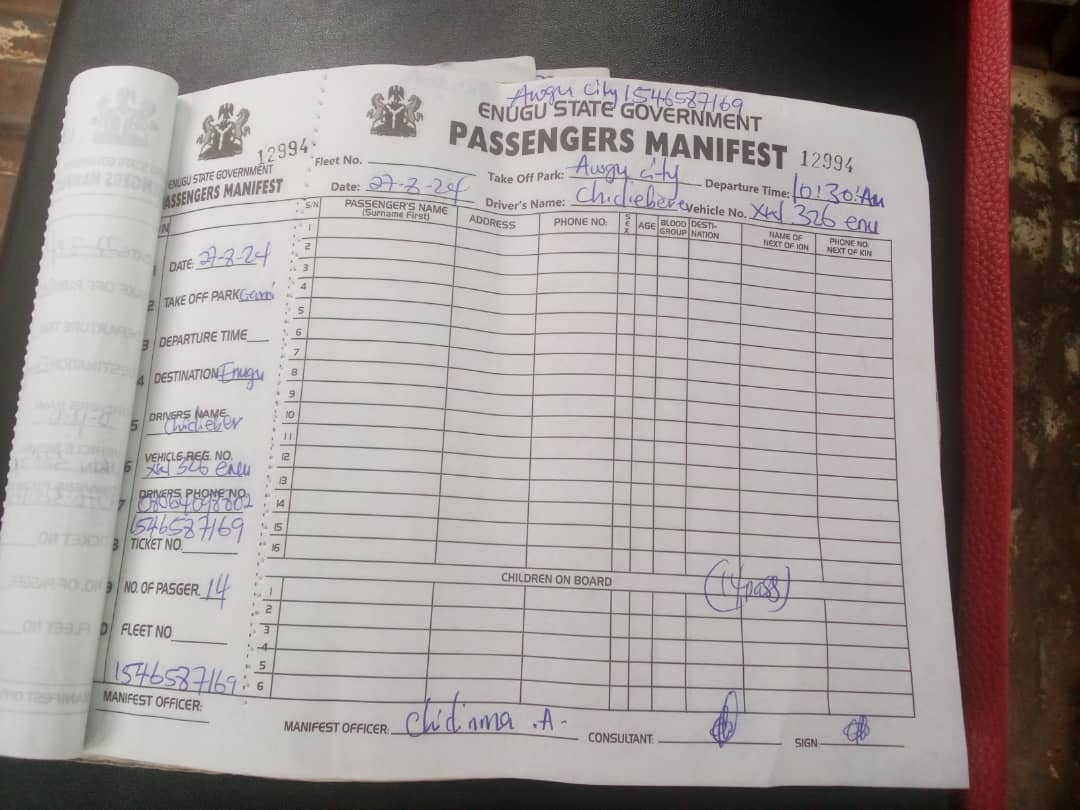 12994
ENUGU STATE GOVERNMENT
PASSENGERS MANIFEST
DATE: 27-8-24
2 TAKE OFF PARK
3 DEPARTURE TIME
4 DESTINATION Enugu
5 DRIVERS NAME
Chidieber
6 VEHICLE REG. NO.
326 enu
7 DRIVERS PHONE NO.
1546587169
8 TICKET NO.
9 NO. OF PASGER. 14
FLEET NO
1546587169
MANIFEST OFFICER:
Awgu City 1546587169
ENUGU STATE GOVERNMENT
PASSENGERS MANIFEST 12994
Fleet No.
Take Off Park: Awgu City
Departure Time: 10:30:Am
Date: 27-8-24
Driver's Name: Chidiebere
Vehicle No. 326 enu
S/N PASSENGER'S NAME (Surname First) ADDRESS PHONE NO: SEX AGE BLOOD GROUP DESTI-NATION NAME OF NEXT OF KIN PHONE NO: NEXT OF KIN
1
2
3
4
5
6
7
8
9
10
11
12
13
14
15
16
CHILDREN ON BOARD
(14 pass)
1
2
3
4
5
6
MANIFEST OFFICER: Chidinma .A-
CONSULTANT:
SIGN